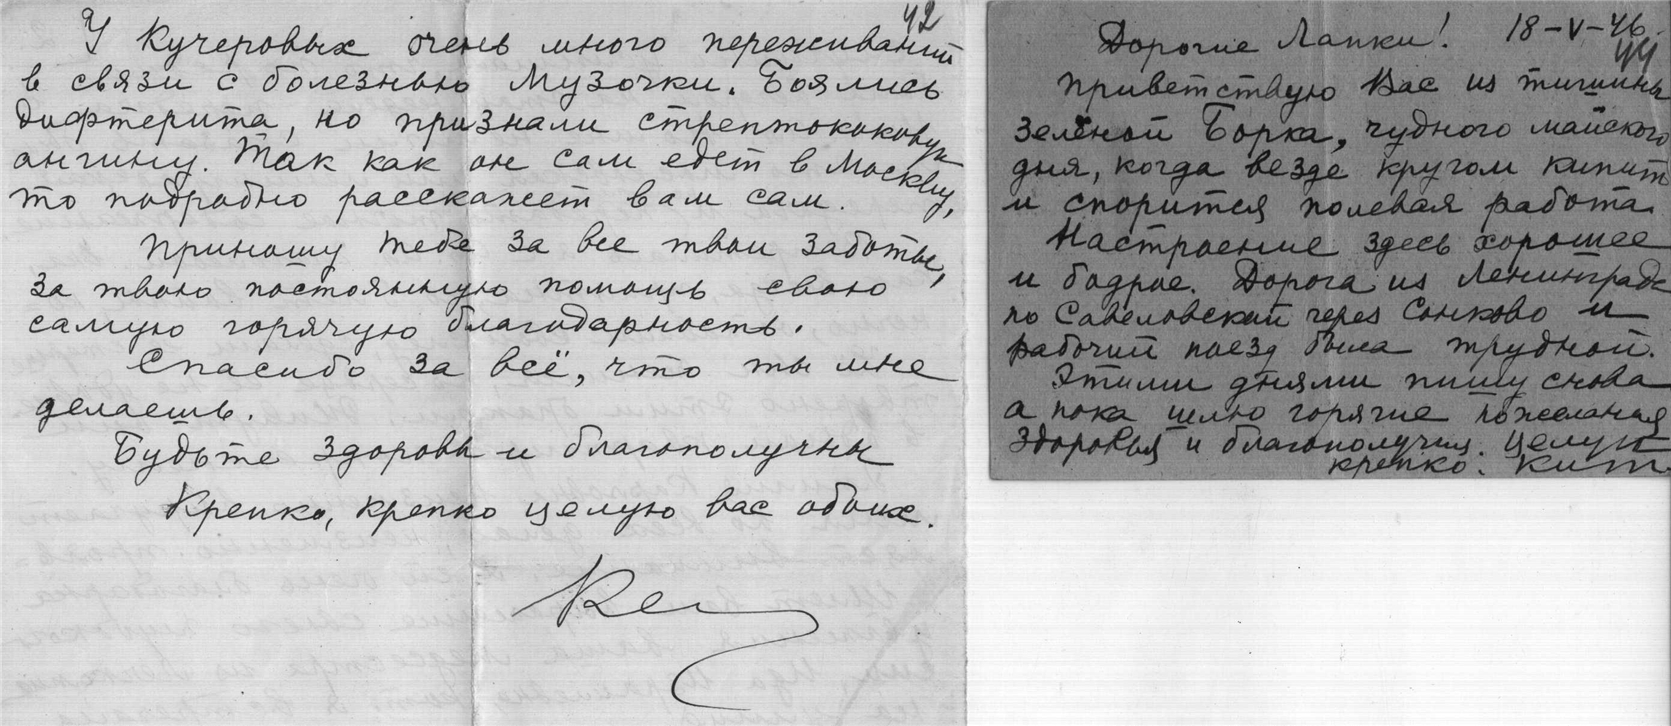 42
У Кучеровых очень много переживаний
в связи с болезнью Музочки. Боялись
дифтерита, но признали стрептококовую
ангину. Так как он сам едет в Москву,
то подробно расскажет вам сам.
Приношу тебе за все твои заботы,
за твою постоянную помощь свою
самую горячую благодарность.
Спасибо за всё, что ты мне
делаешь.
Будьте здоровы и благополучны
Крепко, крепко целую вас обоих.
18-V-46.
44
Дорогие Лапки!
Приветствую Вас из тишины
зелёной Борка, чудного майского
дня, когда везде кругом кипит
и спорится полевая работа.
Настроение здесь хорошее
и бодрое. Дорога из Ленинграда
по Савеловской через Сонково и
рабочий поезд была трудной.
Этими днями пишу снова
а пока шлю горячие пожелания
здоровья и благополучия. Целую
крепко. Кит